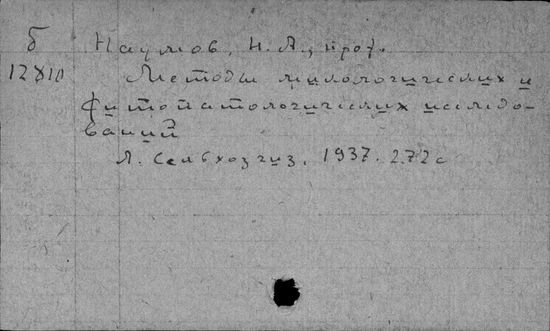 б Наумов, Н. А., проф.
12810 Методы микологических и
фитопатологических исследо-
ваний
Л. Сельхозгиз, 1937. 272 с